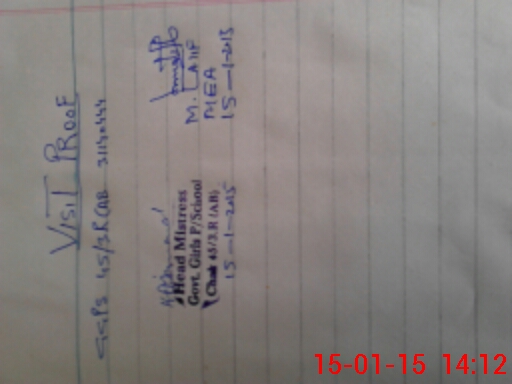 VISIT PROOF
GGPS 45/3R(AB 31130444
Head Mistress
Govt. Girls P/School
Chak 45/3.R (AB)
15-1-2015
M. LATIF
MEA
15-1-2015
15-01-15 14:12